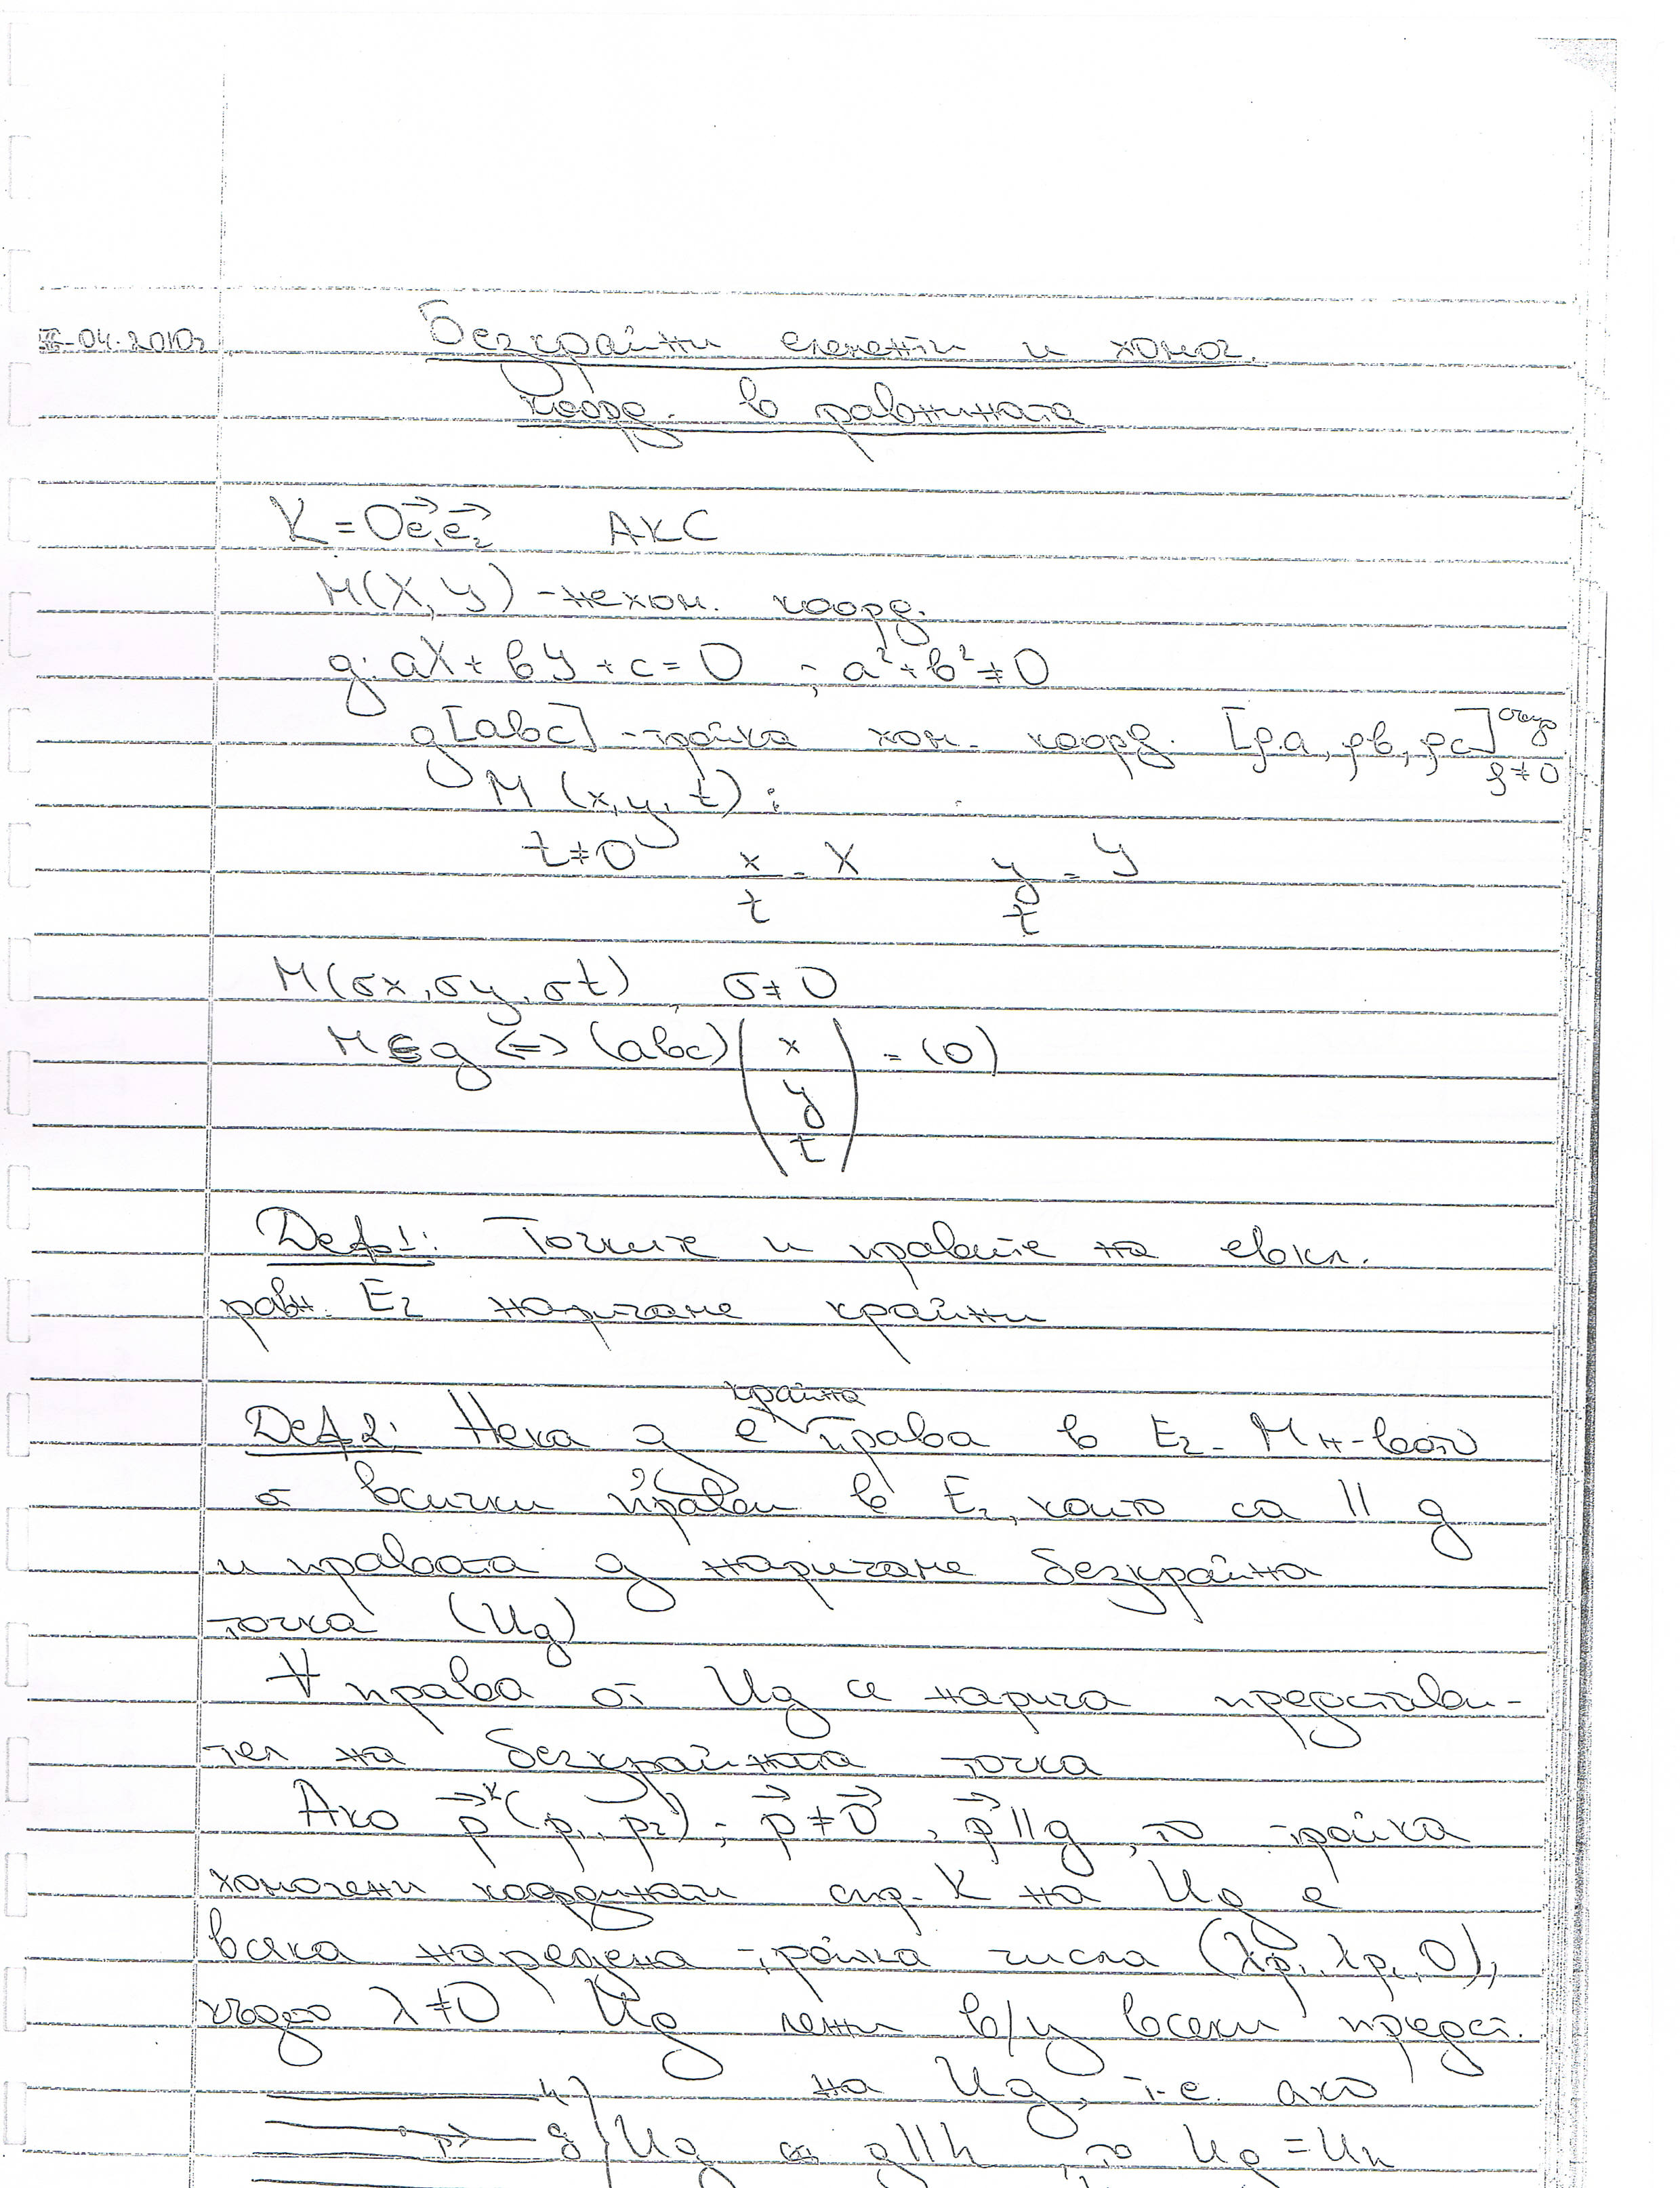 -04.2010г.
Безкрайни елементи и хомог.
коорд. в равнината
K = Oe⃗₁e⃗₂ АКС
M(X, Y) - нехом. коорд.
g: aX + bY + c = 0 ; a² + b² ≠ 0
g[abc] - тройка хом. коорд. [ρa, ρb, ρc] ρ ≠ 0
M (x, y, t) :
t ≠ 0 x/t = X y/t = Y
M(σx, σy, σt), σ ≠ 0
M ∈ g <=> (abc) (x y t) = (0)
Деф1: Точките и правите на евкл.
равн. E₂ наричаме крайни
крайна
Деф2: Нека g е права в E₂. Мн-вото
от всички прави в E₂, които са || g
и правата g наричаме безкрайна
точка (Ug)
∀ права от Ug се нарича представи-
тел на безкрайната точка
Ако p⃗ᴷ(p₁, p₂) ; p⃗ ≠ 0⃗ , p⃗ || g , то тройка
хомогенни координати спр. K на Ug е
всяка наредена тройка числа (λp₁, λp₂, 0),
където λ ≠ 0 Ug лежи в/у всеки предст.
h на Ug, т.е. ако
p⃗ g Ug g || h , то Ug = Uh